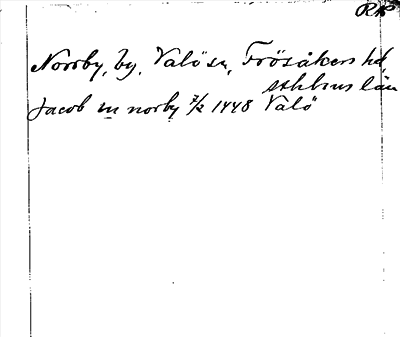 RAP
Norrby, by, Valö sn, Frösåkers hd
sthlms län
Jacob in norby 7/2 1448 Valö